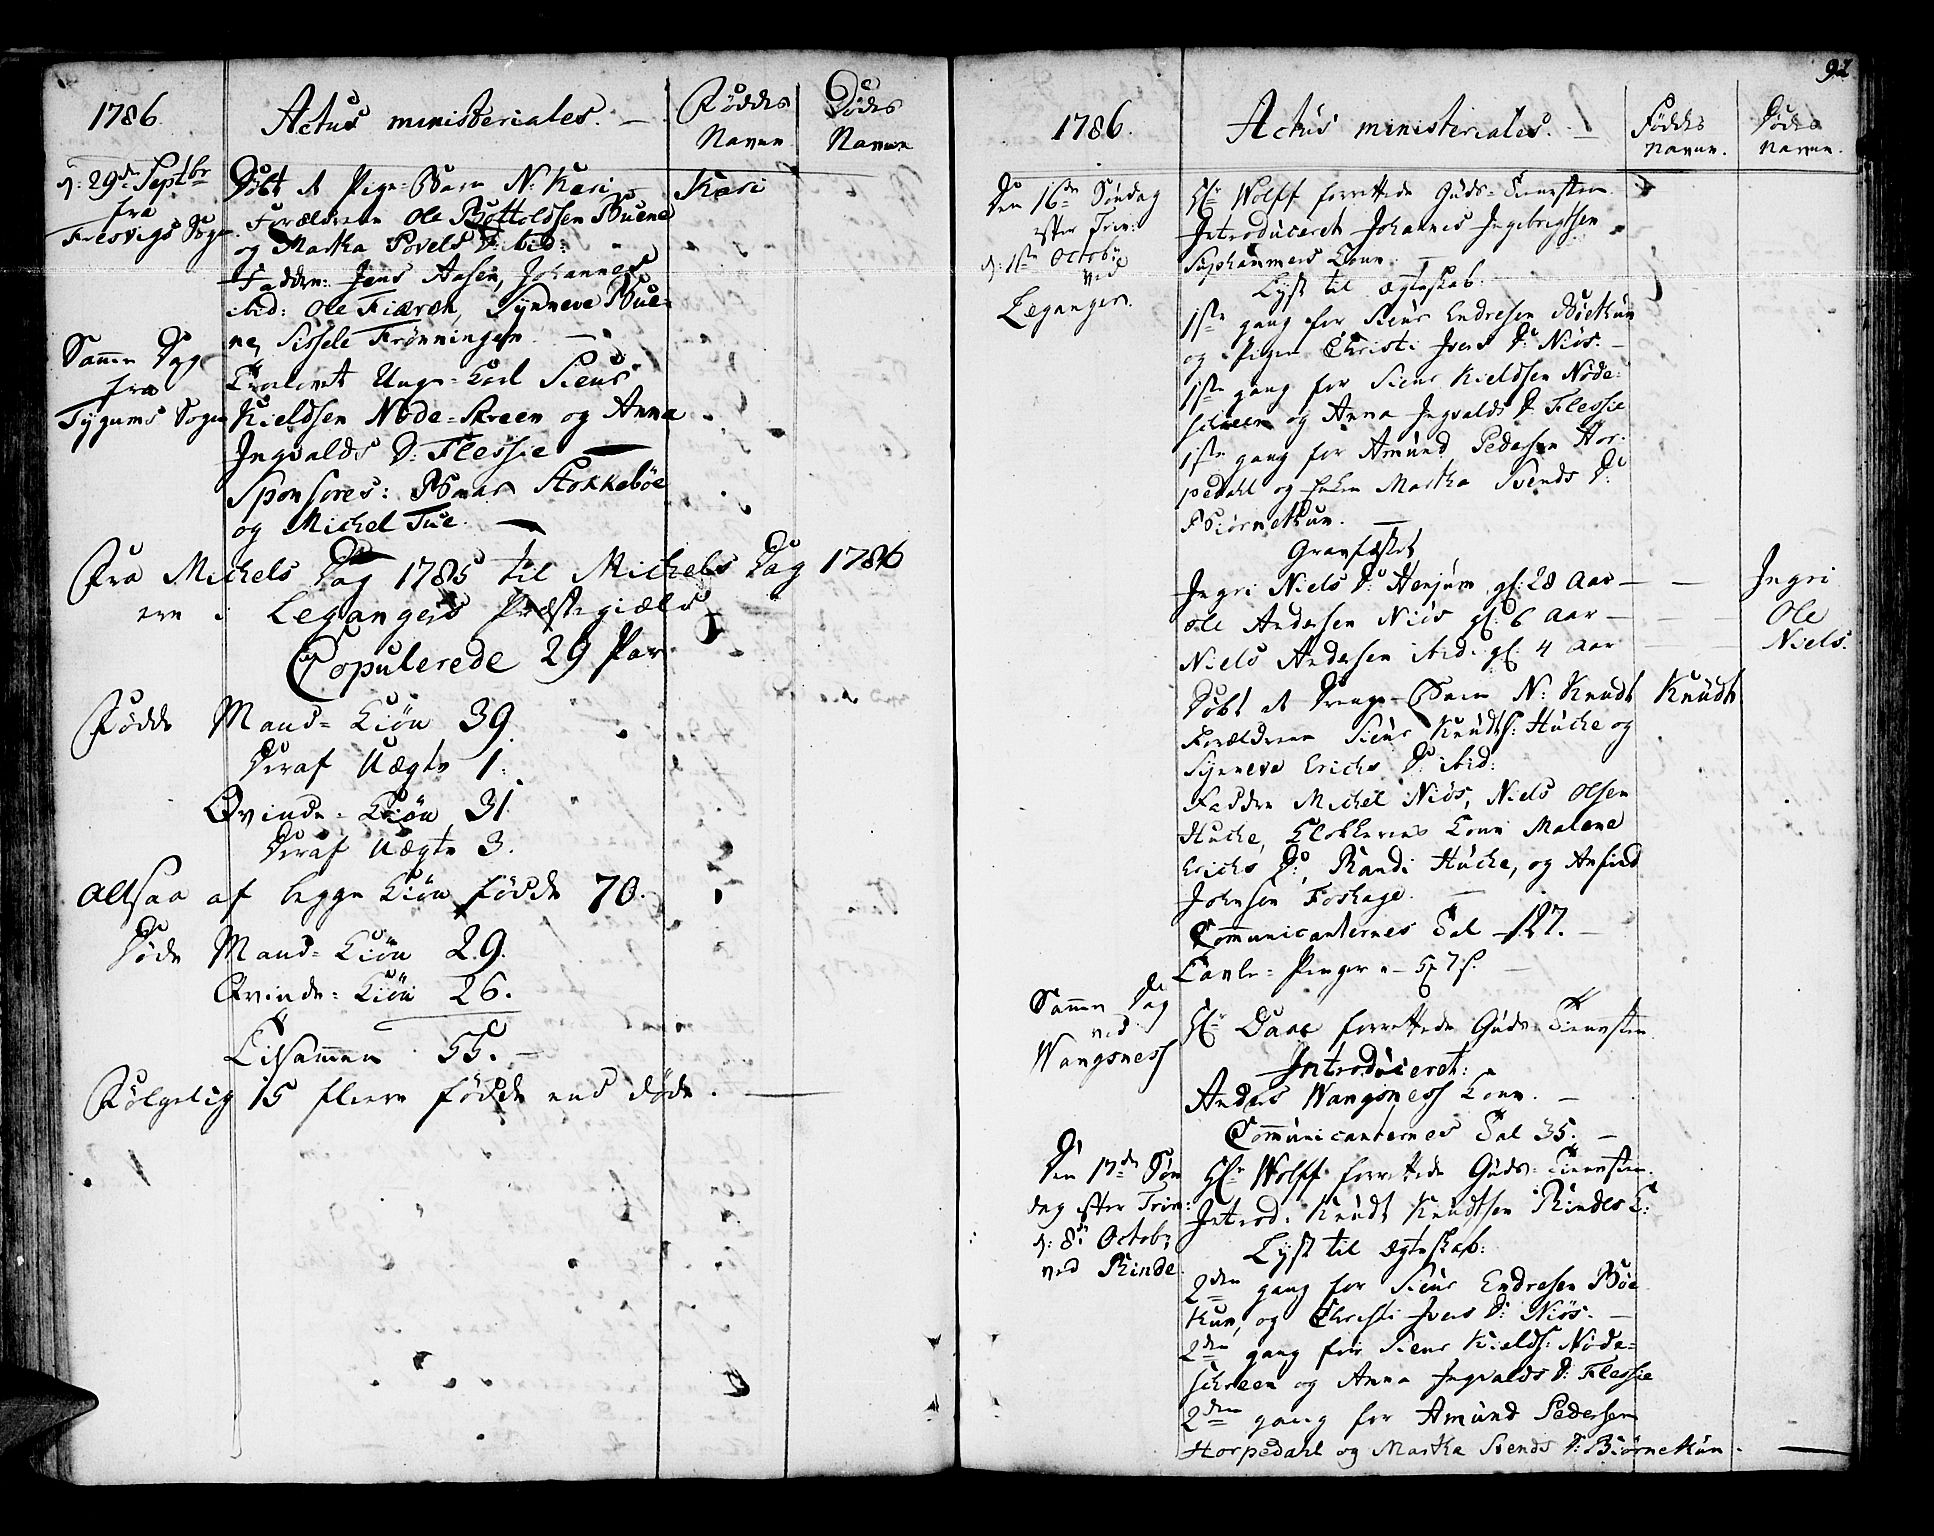 1786.
Actus ministeriales. —
Føddes
Navne
Dødes
Navne
d: 29de Septbr
fra
Fresvigs Sogn
Døbt et Pige-Barn N: Kari
Kari
Forældrene Ole Bottoldsen Buene
og Martha Povels D: ibid:
Faddere: Jens Aasen, Johannes
ibid: Ole Fiæren, Synneve Bue-
ne, Sissele Frønningen —
Samme Dag
fra
Tygums Sogn
Trolovet Unge-Karl Siur
Kieldsen Nøde-Skreen og Anna
Ingvalds D: Flessie —
Sponsores: Stokkebøe
og Michel Tue. —
Fra Michels Dag 1785 til Michels Dag 1786
ere i Legangers Præstegield
Copulerede 29 Par.
Fødde Mand-Kiøn 39.
Deraf Uægte 1.
Qvinde-Kiøn 31
Deraf Uægte 3.
Altsaa af begge Kiøn fødde 70.
Døde Mand-Kiøn 29.
Qvinde-Kiøn 26.
Tilsammen 55. —
Følgelig 15 fleere fødde end døde. —
92
1786.
Actus ministeriales. —
Føddes
Navne.
Dødes
Navne.
Den 16de Søndag
efter Trin:
d: 1ste Octobr
ved
Leganger.
Hr Wolff forrettede Guds-Tienesten
Introduceret Johannes Ingebrigtsen
Suphammers Kone. —
Lyst til Ægteskab.
1ste gang for Siur Endresen Bøetkun
og Pigen Christi Ivers D: Niøs. —
1ste gang for Siur Kieldsen Nøde-
schreen og Anna Ingvalds D: Flessie
1ste gang for Amund Pedersen Hor-
pedahl og Enken Martha Svends D:
Biørnetkun. —
Gravfæstet
Ingri Niels D: Henjum gl: 28 Aar — —
Ingri
Ole Andersen Niøs gl: 6 Aar — — —
Ole
Niels Andersen ibid. gl: 4 Aar — —
Niels.
Døbt et Drenge-Barn N: Knudt
Knudt
Forældrene Siur Knudts: Hucke og
Synneva Erichs D: ibid:
Faddere Michel Niøs, Niels Olsen
Hucke, Klokkerens Kone Malene
Erichs D:, Randi Hucke, og Anfind
Johnsen Foshage. —
Communicanternes Tal 127. —
Tavle-Penger — 5 7 s. —
Samme Dag
ved
Wangsness
Hr Daae forrettede Guds-Tienesten
Introduceret:
Anders Wangsness Kone. —
Communicanternes Tal 35. —
Den 17de Søn
dag efter Trin:
d: 8de Octobr
ved Rinde.
Hr Wolff forrettede Guds-Tienesten.
Introd. Knudt Knudtsen Rindes K:
Lyst til Ægteskab:
2den gang for Siur Endresen Bøe
tkun, og Christi Ivers D: Niøs. —
2den gang for Siur Kields: Nøde-
schreen og Anna Ingvalds D: Flessie
2den gang for Amund Pedersen
Horpedahl og Martha Svends D: Biørnetkun. —